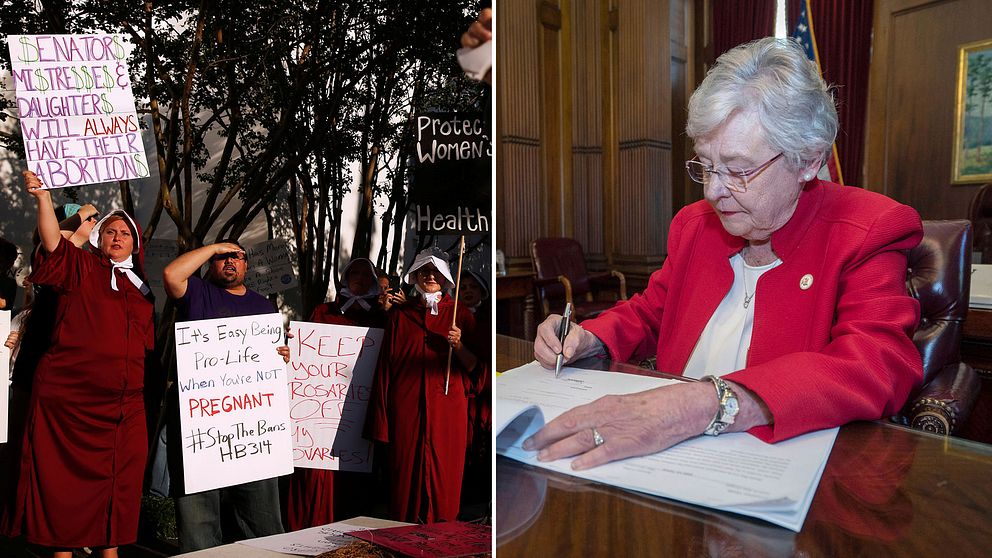 $ENATOR$
MI$TRE$$E$ &
DAUGHTER$
WILL ALWAYS
HAVE THEIR
ABORTION$
Protect
WOMEN'S
Health
It's Easy Being
Pro-Life
When You're NOT
PREGNANT
#StopTheBans
HB314
KEEP
YOUR
ROSARIES
OFF
My
OVARIES!